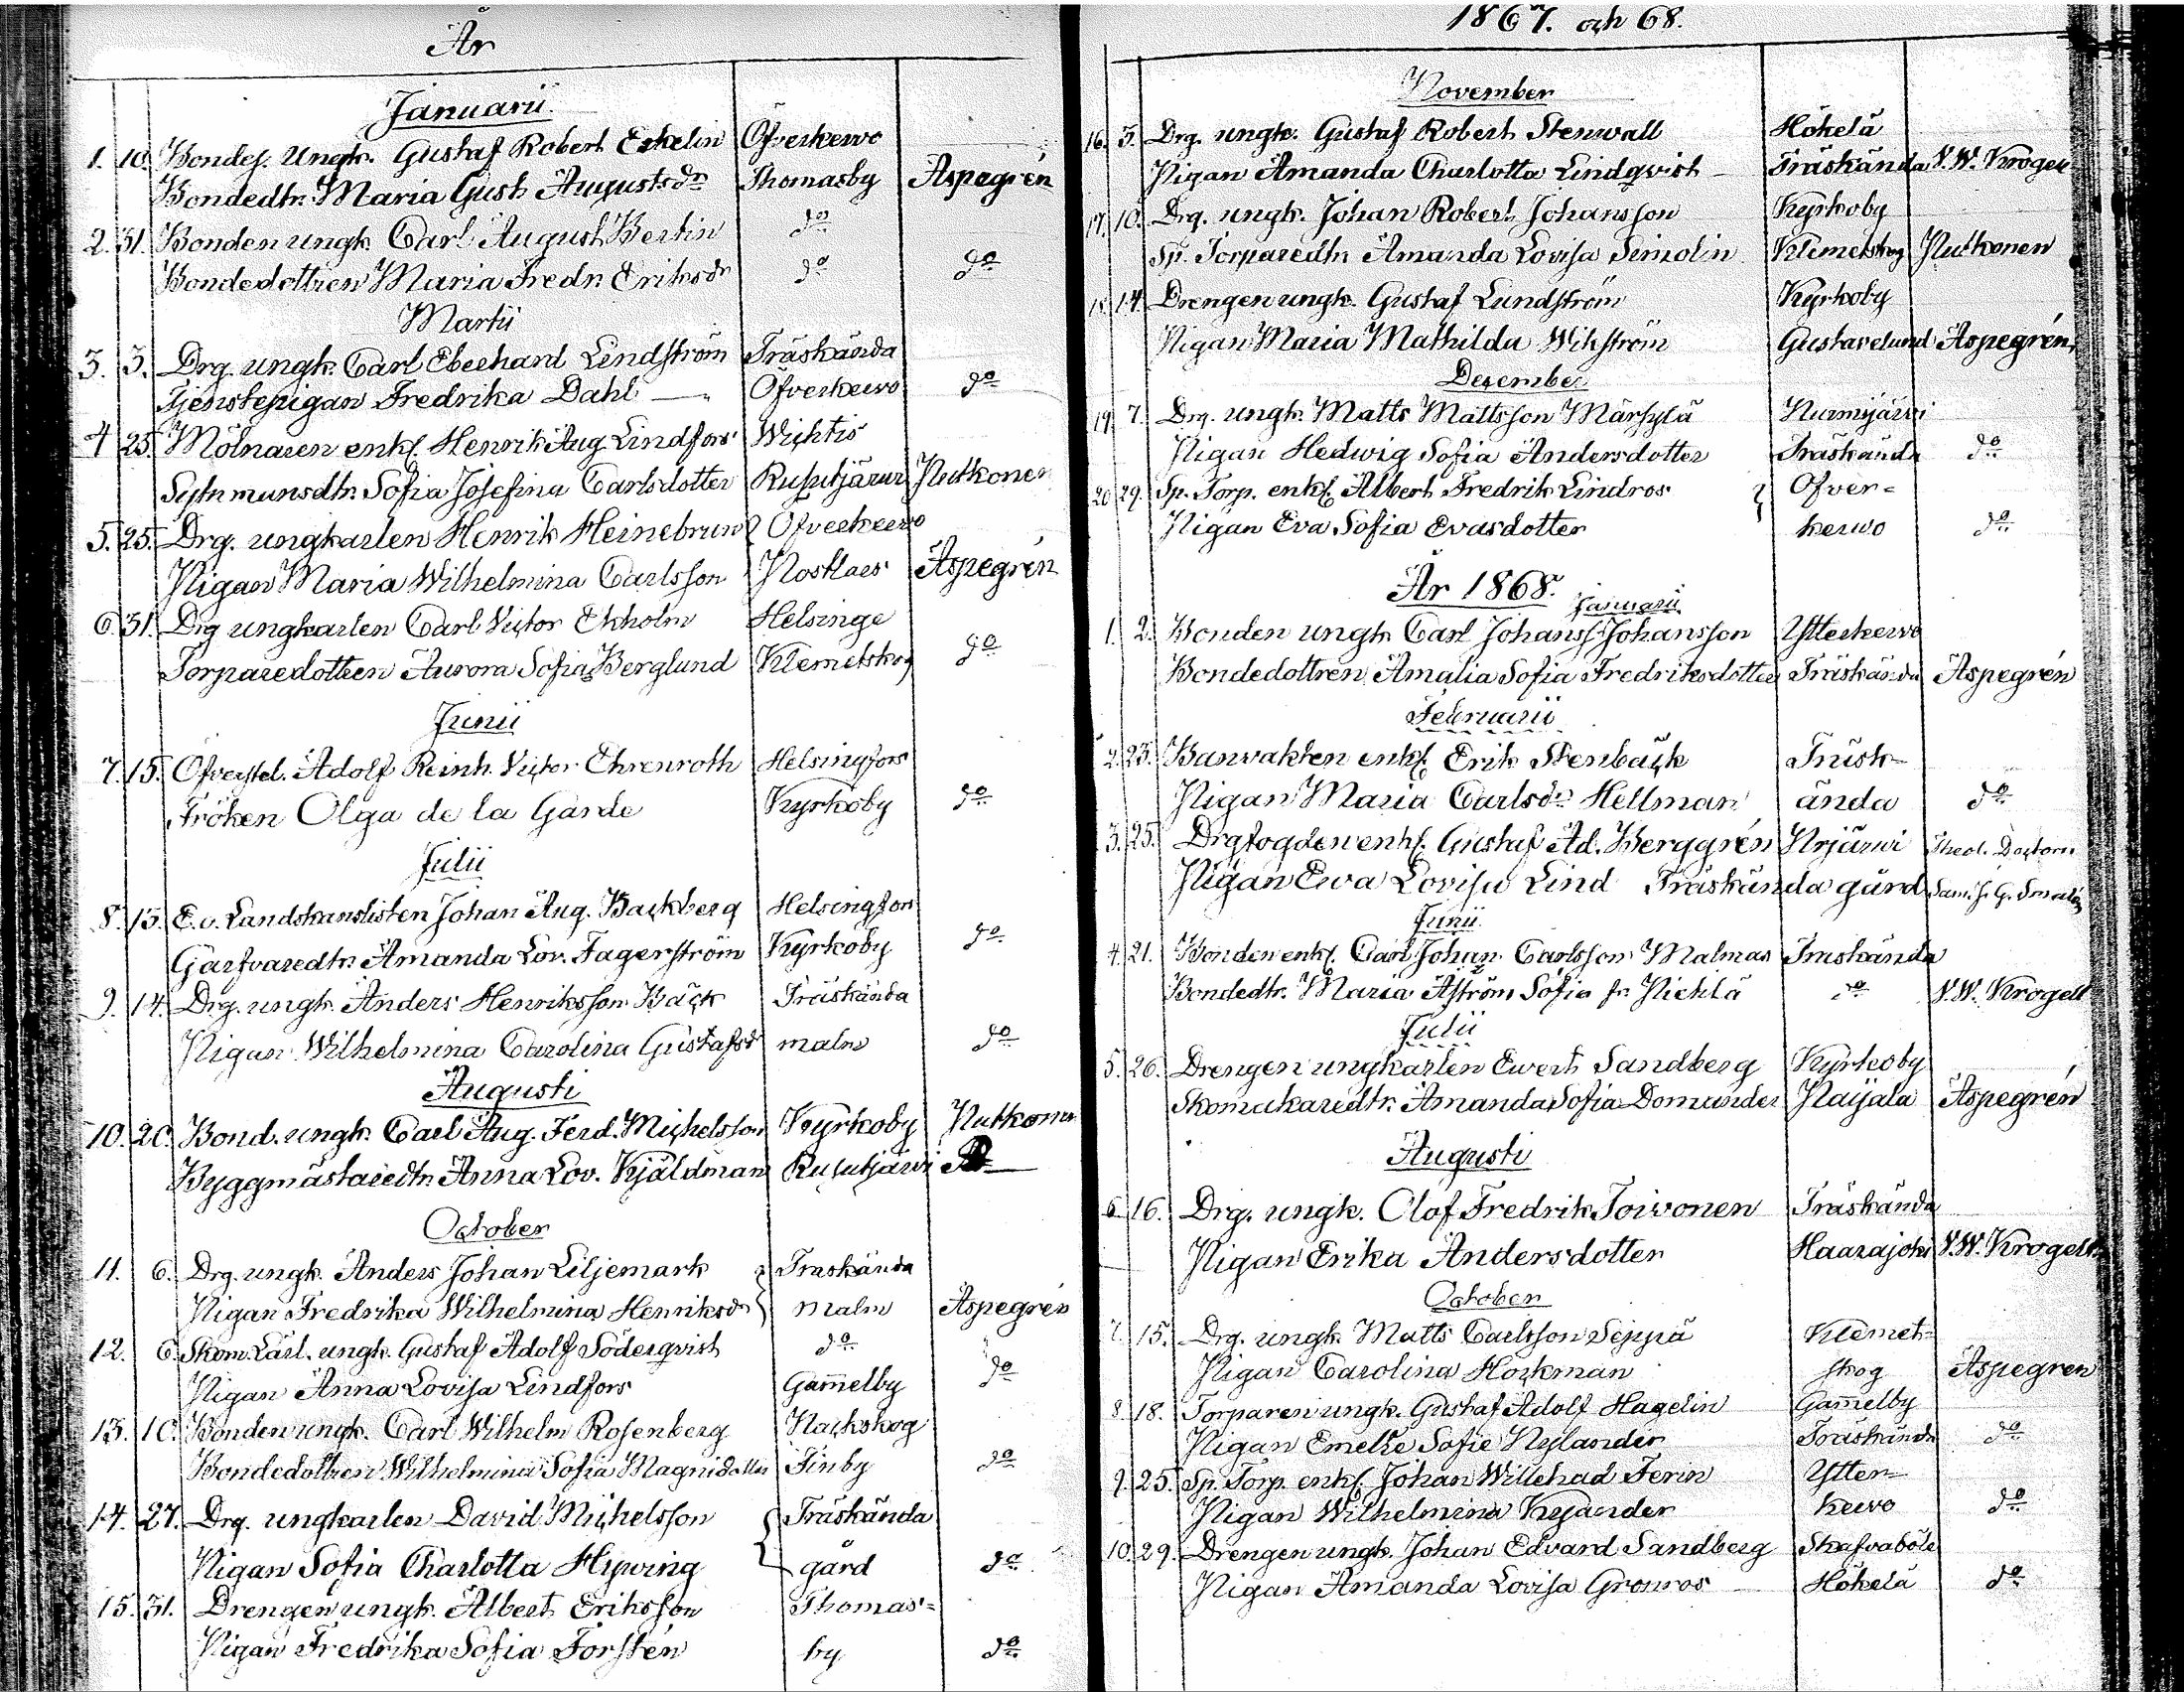 År
Januarii
1. 10. Bondes. Ungk. Gustaf Robert Eskelin Öfverkervo
Bondedtr. Maria Gust. Augustsdr Thomasby Aspegrén
2. 31. Bonden ungk. Carl August Bertin do
Bondedottren Maria Fredr. Eriksdr do do
Martii
3. 3. Drg. ungk. Carl Eberhard Lindström Träskända
Tjenstepigan Fredrika Dahl Öfverkervo do
4 25. Mölnaren enkl. Henrik Aug. Lindfors Wichtis
Sytnmansdtr. Sofia Josefina Carlsdotter Rusutjärvi Nutkonen
5. 25. Drg. ungkarlen Henrik Heinebrun Öfverkervo
Pigan Maria Wilhelmina Carlsson Nostlaes Aspegrén
6. 31. Drg ungkarlen Carl Victor Ekholm Helsinge
Torparedottren Aurora Sofia Berglund Klemetskog do
Junii
7. 15. Öfverstel. Adolf Reinh. Victor Ehrnroth Helsingfors
Fröken Olga de la Garde Kyrkoby do
Julii
8. 13. E. o. Landskanslisten Johan Aug. Backberg Helsingfors
Garfvaredtr. Amanda Lov. Fagerström Kyrkoby do
9. 14. Drg. ungk. Anders Henriksson Bäck Träskända
Pigan Wilhelmina Carolina Gustafsdr malm do
Augusti
10. 20. Bond. ungk. Carl Aug. Ferd. Michelsson Kyrkoby Nutkonen
Byggmästaredtr. Anna Lov. Kjäldman Rusutjärvi
October
11. 6. Drg. ungk. Anders Johan Liljemark Träskända
Pigan Fredrika Wilhelmina Henriksdr malm Aspegrén
12. 6. Skom. Lärl. ungk. Gustaf Adolf Söderqvist do
Pigan Anna Lovisa Lindfors Gam̄elby do
13. 10. Bonden ungk. Carl Wilhelm Rosenberg Nackskog
Bondedottren Wilhelmina Sofia Magnidotter Finby do
14. 27. Drg. ungkarlen David Michelsson Träskända
Pigan Sofia Charlotta Hyving gård do
15. 31. Drengen ungk. Albert Eriksson Thomas=
Pigan Fredrika Sofia Forstén by do
1867. och 68.
November
16. 3. Drg. ungk. Gustaf Robert Stenwall Hökelä
Pigan Amanda Charlotta Lindqvist Träskända V. W. Krogell
17. 10. Drg. ungk. Johan Robert Johansson Kyrkoby
Sp. Torparedtr Amanda Lovisa Simolin Klemetskog Nutkonen
18. 14. Drengen ungk. Gustaf Lundström Kyrkoby
Pigan Maria Mathilda Wikström Gustavelund Aspegrén,
December
19. 7. Drg. ungk. Matts Mattsson Märsylä Nurmijärvi
Pigan Hedwig Sofia Andersdotter Träskända do
20 29. Sp. Torp. enkl. Albert Fredrik Lindros Öfver=
Pigan Eva Sofia Evasdotter kervo do
År 1868.
Januarii
1. 2. Bonden ungk. Carl Johanss. Johansson Ytterkervo
Bondedottren Amalia Sofia Fredriksdotter Träskända Aspegrén
Februarii
2. 23. Banvakten enkl. Erik Stenbäck Träsk=
Pigan Maria Carlsdr. Hellman ända do
3. 25. Drgfogden enkl. Gustaf Ad. Berggrén Nrjärvi Theol. Doctorn
Pigan Eva Lovisa Lind Träskända gård
Junii
4. 21. Bonden enkl. Carl Johan Carlsson Malmas Träskända
Bondedtr. Maria Aström Sofia fr. Pickilä do V. W. Krogell
Julii
5. 26. Drengen ungkarlen Evert Sandberg Kyrkoby
Skomakaredtr. Amanda Sofia Domander Paijala Aspegrén
Augusti
6. 16. Drg. ungk. Olof Fredrik Toivonen Träskända
Pigan Erika Andersdotter Haarajoki V. W. Krogell
October
7. 15. Drg. ungk. Matts Carlsson Seppä Klemet=
Pigan Carolina Hockman skog Aspegren
8. 18. Torparen ungk. Gustaf Adolf Hagelin Gam̄elby
Pigan Emelie Sofie Nylander Träskända do
9. 25. Sp. Torp. enkl. Johan Willehad Ferin Ytter=
Pigan Wilhelmina Kyander kervo do
10. 29. Drengen ungk. Johan Edvard Sandberg Skafvaböle
Pigan Amanda Lovisa Gronros Hökelä do